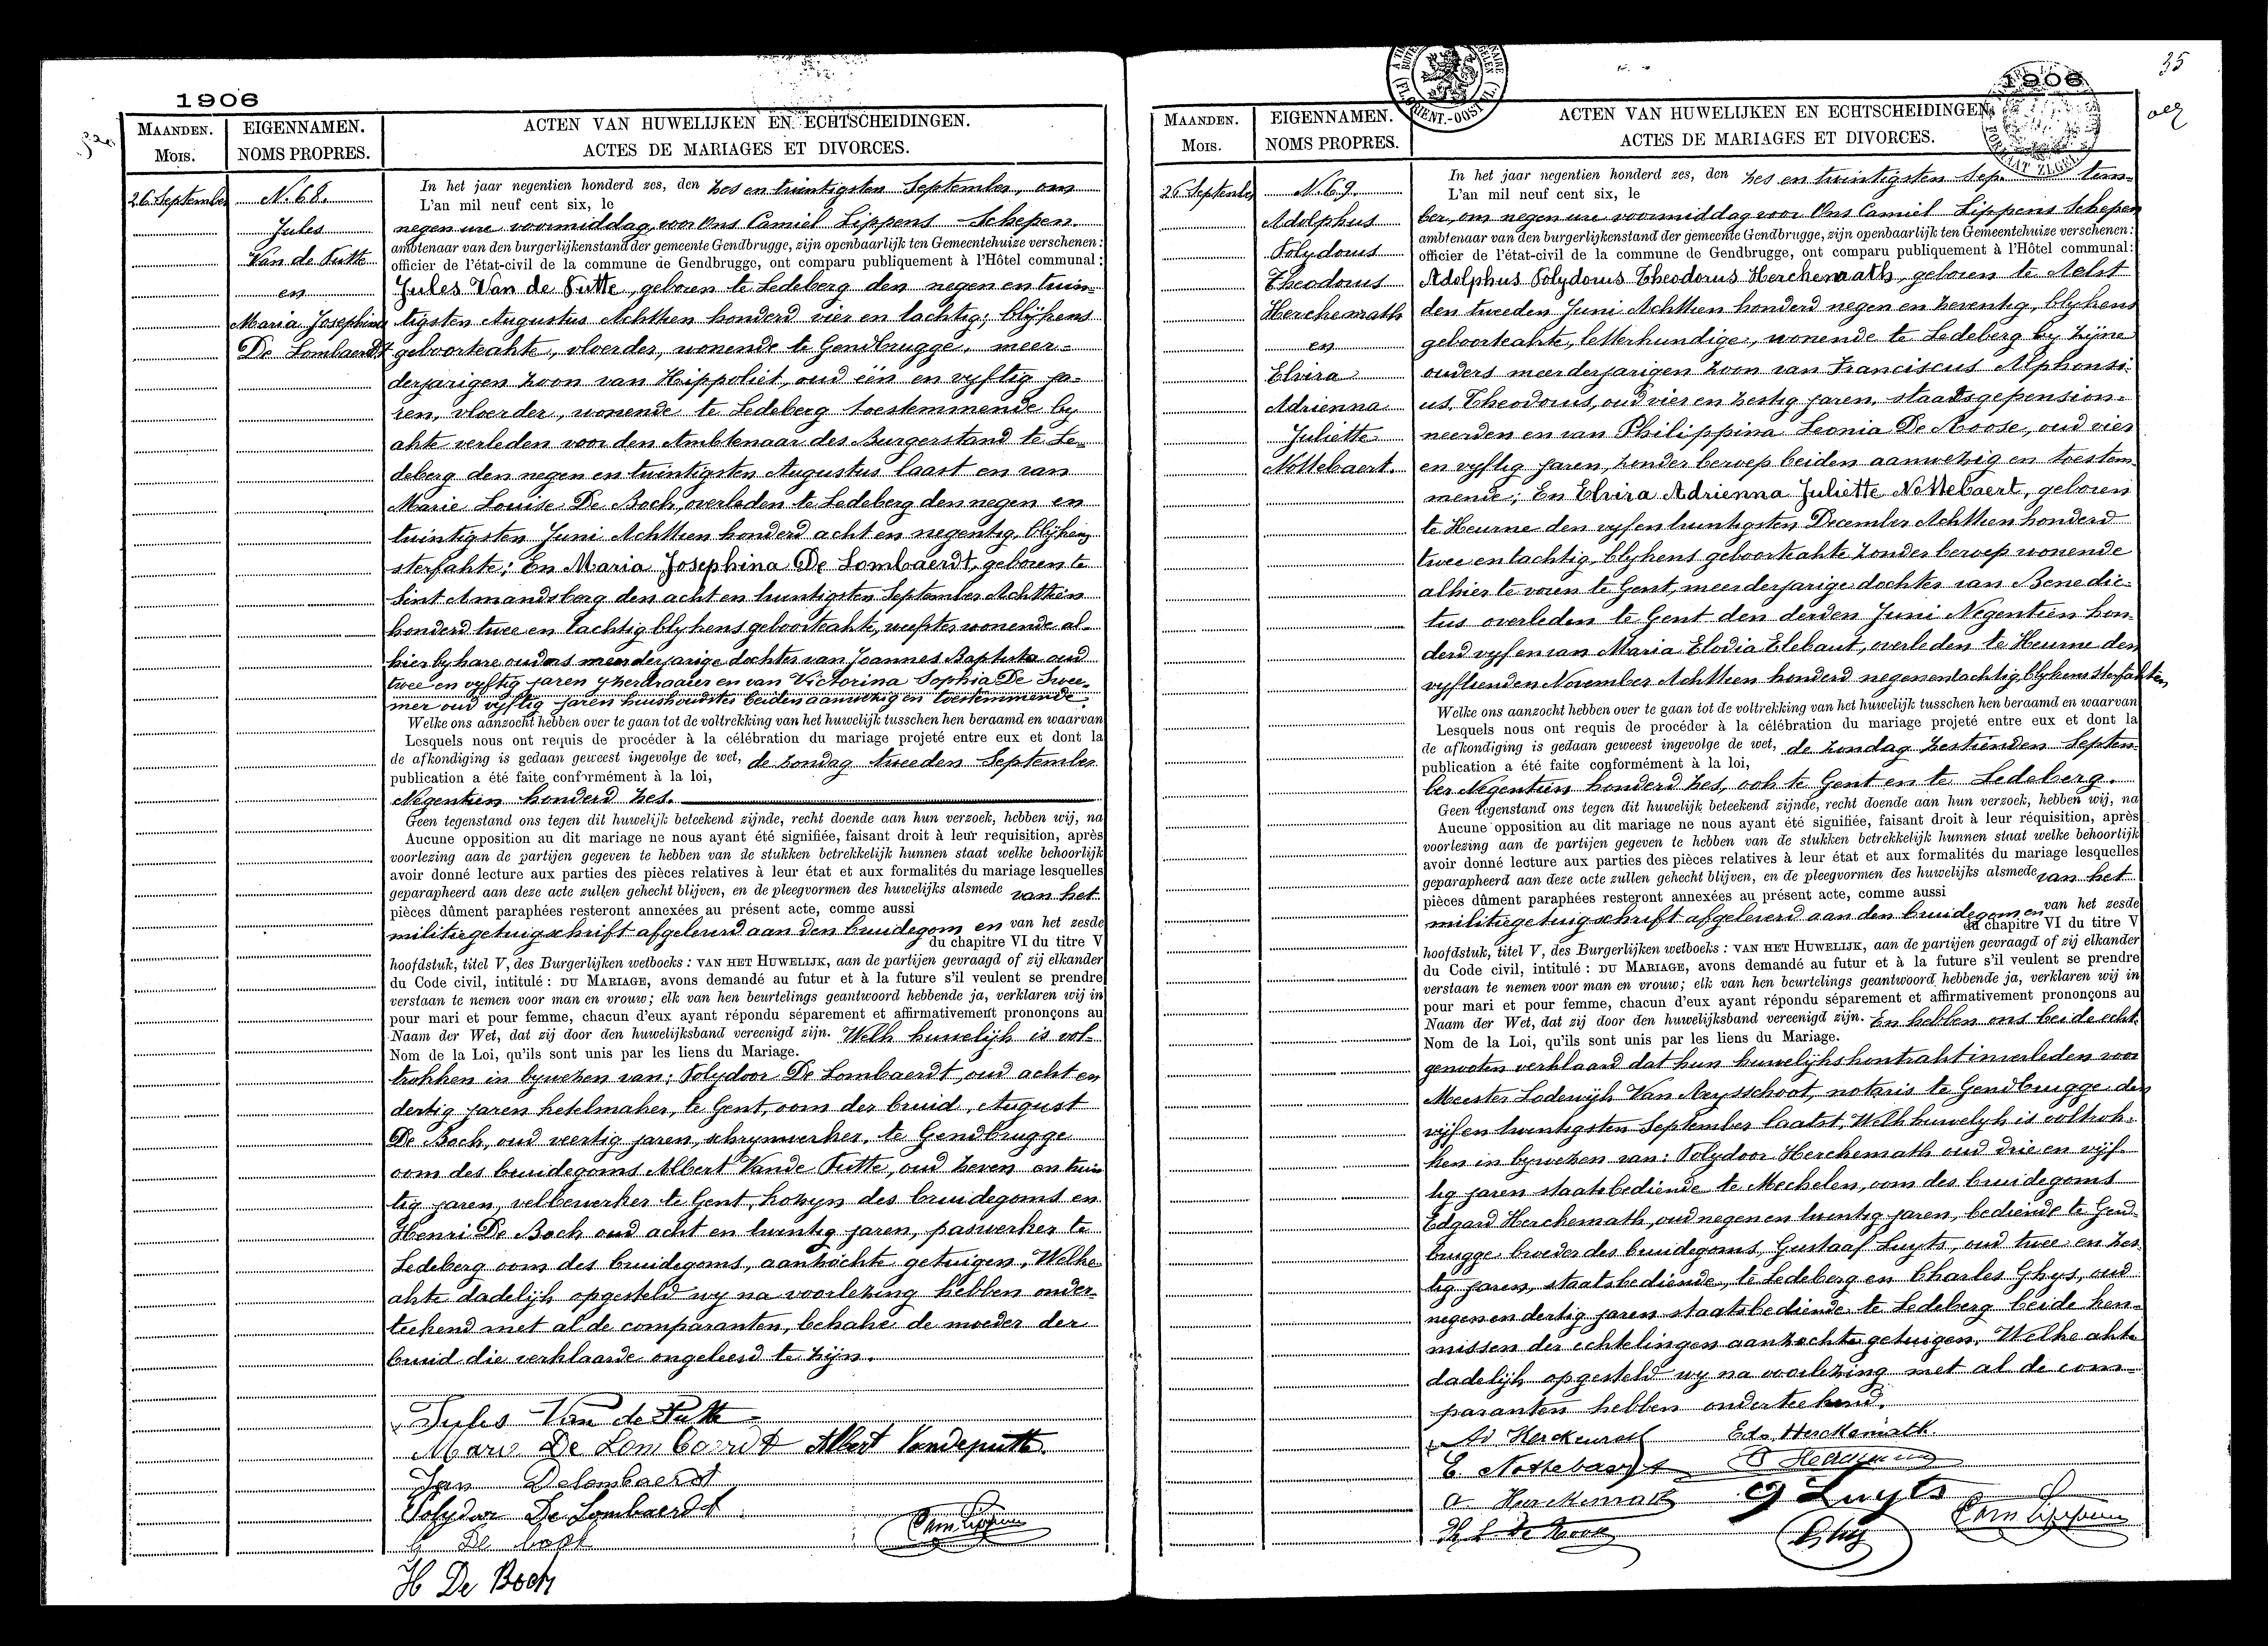 1906
MAANDEN.
Mois.
EIGENNAMEN.
NOMS PROPRES.
ACTEN VAN HUWELIJKEN EN ECHTSCHEIDINGEN.
ACTES DE MARIAGES ET DIVORCES.
26 September
N. 68.
Jules
Van de Putte
en
Maria Josephina
De Lombaerdt
In het jaar negentien honderd zes, den zes en twintigsten September, om
L'an mil neuf cent six, le
negen ure voormiddag, voor Ons Camiel Lippens Schepen
ambtenaar van den burgerlijkenstand der gemeente Gendbrugge, zijn openbaarlijk ten Gemeentehuize verschenen:
officier de l'état-civil de la commune de Gendbrugge, ont comparu publiquement à l'Hôtel communal:
Jules Van de Putte, geboren te Ledeberg den negen en twin-
tigsten Augustus Achttien honderd vier en tachtig; blijkens
geboorteakte, vloerder, wonende te Gendbrugge, meer-
derjarigen zoon van Hippoliet, oud één en vyftig ja-
ren, vloerder, wonende te Ledeberg toestemmende by
akte verleden voor den Ambtenaar des Burgerstand te Le-
deberg den negen en twintigsten Augustus laast en van
Marie Louise De Bock, overleden te Ledeberg den negen en
twintigsten Juni Achttien honderd acht en negentig, blijkens
sterfakte; En Maria Josephina De Lombaerdt, geboren te
Sint Amandsberg den acht en twintigsten September Achttien
honderd twee en tachtig blykens geboorteakte, wonende al-
hier by hare ouders meerderjarige dochter van Joannes Baptista oud
twee en vyftig jaren yzerdraaier en van Victorina Sophia De Swee-
mer oud vyftig jaren huishoudster beiden aanwezig en toestemmende.
Welke ons aanzocht hebben over te gaan tot de voltrekking van het huwelijk tusschen hen beraamd en waarvan
Lesquels nous ont requis de procéder à la célébration du mariage projeté entre eux et dont la
de afkondiging is gedaan geweest ingevolge de wet, de zondag tweeden September
publication a été faite conformément à la loi,
Negentien honderd zes.
Geen tegenstand ons tegen dit huwelijk beteekend zijnde, recht doende aan hun verzoek, hebben wij, na
Aucune opposition au dit mariage ne nous ayant été signifiée, faisant droit à leur requisition, après
voorlezing aan de partijen gegeven te hebben van de stukken betrekkelijk hunnen staat welke behoorlijk
avoir donné lecture aux parties des pièces relatives à leur état et aux formalités du mariage lesquelles
geparapheerd aan deze acte zullen gehecht blijven, en de pleegvormen des huwelijks alsmede van het
pièces dûment paraphées resteront annexées au présent acte, comme aussi
militiegetuigschrift afgeleverd aan den bruidegom en van het zesde
du chapitre VI du titre V
hoofdstuk, titel V, des Burgerlijken wetboeks: VAN HET HUWELIJK, aan de partijen gevraagd of zij elkander
du Code civil, intitulé: DU MARIAGE, avons demandé au futur et à la future s'il veulent se prendre
verstaan te nemen voor man en vrouw; elk van hen beurtelings geantwoord hebbende ja, verklaren wij in
pour mari et pour femme, chacun d'eux ayant répondu séparement et affirmativement prononçons au
Naam der Wet, dat zij door den huwelijksband vereenigd zijn. Welk huwelijk is vol-
Nom de la Loi, qu'ils sont unis par les liens du Mariage.
trokken in bywezen van: Polydoor De Lombaerdt, oud acht en
dertig jaren ketelmaker, te Gent, oom der bruid, August
De Bock, oud veertig jaren, schrynwerker, te Gendbrugge
oom des bruidegoms Albert Vande Putte, oud zeven en twin
tig jaren, velbewerker te Gent, kozyn des bruidegoms en
Henri De Bock oud acht en twintig jaren, paswerker te
Ledeberg oom des bruidegoms, aanzochte getuigen, Welke
akte dadelijk opgesteld wy na voorlezing hebben onder-
teekend met al de comparanten, behalve de moeder der
bruid die verklaarde ongeleerd te zijn.
Jules Van de Putte
Marie De Lombaerdt Albert Vandeputte
Jan Delombaerdt
Polydor De Lombaerdt
De bock
Cam Lippens
H De Bock
35
1906
MAANDEN.
Mois.
EIGENNAMEN.
NOMS PROPRES.
ACTEN VAN HUWELIJKEN EN ECHTSCHEIDINGEN.
ACTES DE MARIAGES ET DIVORCES.
26 September
N. 69.
Adolphus
Polydorus
Theodorus
Herckenrath
en
Elvira
Adrienna
Juliette
Nottebaert.
In het jaar negentien honderd zes, den zes en twintigsten Sep. tem-
L'an mil neuf cent six, le
ber, om negen ure voormiddag voor Ons Camiel Lippens Schepen
ambtenaar van den burgerlijkenstand der gemeente Gendbrugge, zijn openbaarlijk ten Gemeentehuize verschenen:
officier de l'état-civil de la commune de Gendbrugge, ont comparu publiquement à l'Hôtel communal:
Adolphus Polydorus Theodorus Herckenrath, geboren te Aelst
den tweeden Juni Achttien honderd negen en zeventig, blykens
geboorteakte, letterkundige, wonende te Ledeberg by zijne
ouders meerderjarigen zoon van Franciscus Alphonsi-
us, Theodorus, oud vier en zestig jaren, staatsgepension-
neerden en van Philippina Leonia De Roose, oud vier
en vyftig jaren, zonder beroep beiden aanwezig en toestem-
mende; En Elvira Adrienna Juliette Nottebaert, geboren
te Heurne den vyf en twintigsten December Achttien honderd
twee en tachtig, blykens geboorteakte zonder beroep wonende
alhier te voren te Gent, meerderjarige dochter van Benedic-
tus overleden te Gent den derden Juni Negentien hon-
derd vyf en van Maria Elodia Elebaut, overleden te Heurne den
vyftienden November Achttien honderd negenentachtig, blykens sterfakten,
Welke ons aanzocht hebben over te gaan tot de voltrekking van het huwelijk tusschen hen beraamd en waarvan
Lesquels nous ont requis de procéder à la célébration du mariage projeté entre eux et dont la
de afkondiging is gedaan geweest ingevolge de wet, de zondag zestienden Septem-
publication a été faite conformément à la loi,
ber Negentien honderd zes, ook te Gent en te Ledeberg.
Geen tegenstand ons tegen dit huwelijk beteekend zijnde, recht doende aan hun verzoek, hebben wij, na
Aucune opposition au dit mariage ne nous ayant été signifiée, faisant droit à leur réquisition, après
voorlezing aan de partijen gegeven te hebben van de stukken betrekkelijk hunnen staat welke behoorlijk
avoir donné lecture aux parties des pièces relatives à leur état et aux formalités du mariage lesquelles
geparapheerd aan deze acte zullen gehecht blijven, en de pleegvormen des huwelijks alsmede van het
pièces dûment paraphées resteront annexées au présent acte, comme aussi
militiegetuigschrift afgeleverd aan den bruidegom en van het zesde
du chapitre VI du titre V
hoofdstuk, titel V, des Burgerlijken wetboeks: VAN HET HUWELIJK, aan de partijen gevraagd of zij elkander
du Code civil, intitulé: DU MARIAGE, avons demandé au futur et à la future s'il veulent se prendre
verstaan te nemen voor man en vrouw; elk van hen beurtelings geantwoord hebbende ja, verklaren wij in
pour mari et pour femme, chacun d'eux ayant répondu séparement et affirmativement prononçons au
Naam der Wet, dat zij door den huwelijksband vereenigd zijn. En hebben ons beide echt-
Nom de la Loi, qu'ils sont unis par les liens du Mariage.
genooten verklaard dat hun huwelijkskontrakt is verleden voor
Meester Lodewijk Van Ruysschoot, notaris te Gendbrugge den
vijf en twintigsten September laatst, Welk huwelyk is voltrok-
ken in bywezen van: Polydoor Herckenrath oud drie en vijf-
tig jaren staatsbediende te Mechelen, oom des bruidegoms
Edgard Herckenrath, oud negen en twintig jaren, bediende te Gend-
brugge, broeder des bruidegoms, Gustaaf Luyts, oud twee en zes
tig jaren, staatsbediende, te Ledeberg en Charles Ghys, oud
negen en dertig jaren staatsbediende te Ledeberg beide ken-
nissen der echtelingen aanzochte getuigen. Welke akte
dadelijk opgesteld wy na voorlezing met al de com-
paranten hebben onderteekend.
Ad Herckenrath Edg Herckenrath
E. Nottebaert P Herckenrath
A Herckenrath G Luyts
Ph L De Roose Ghys Cam Lippens